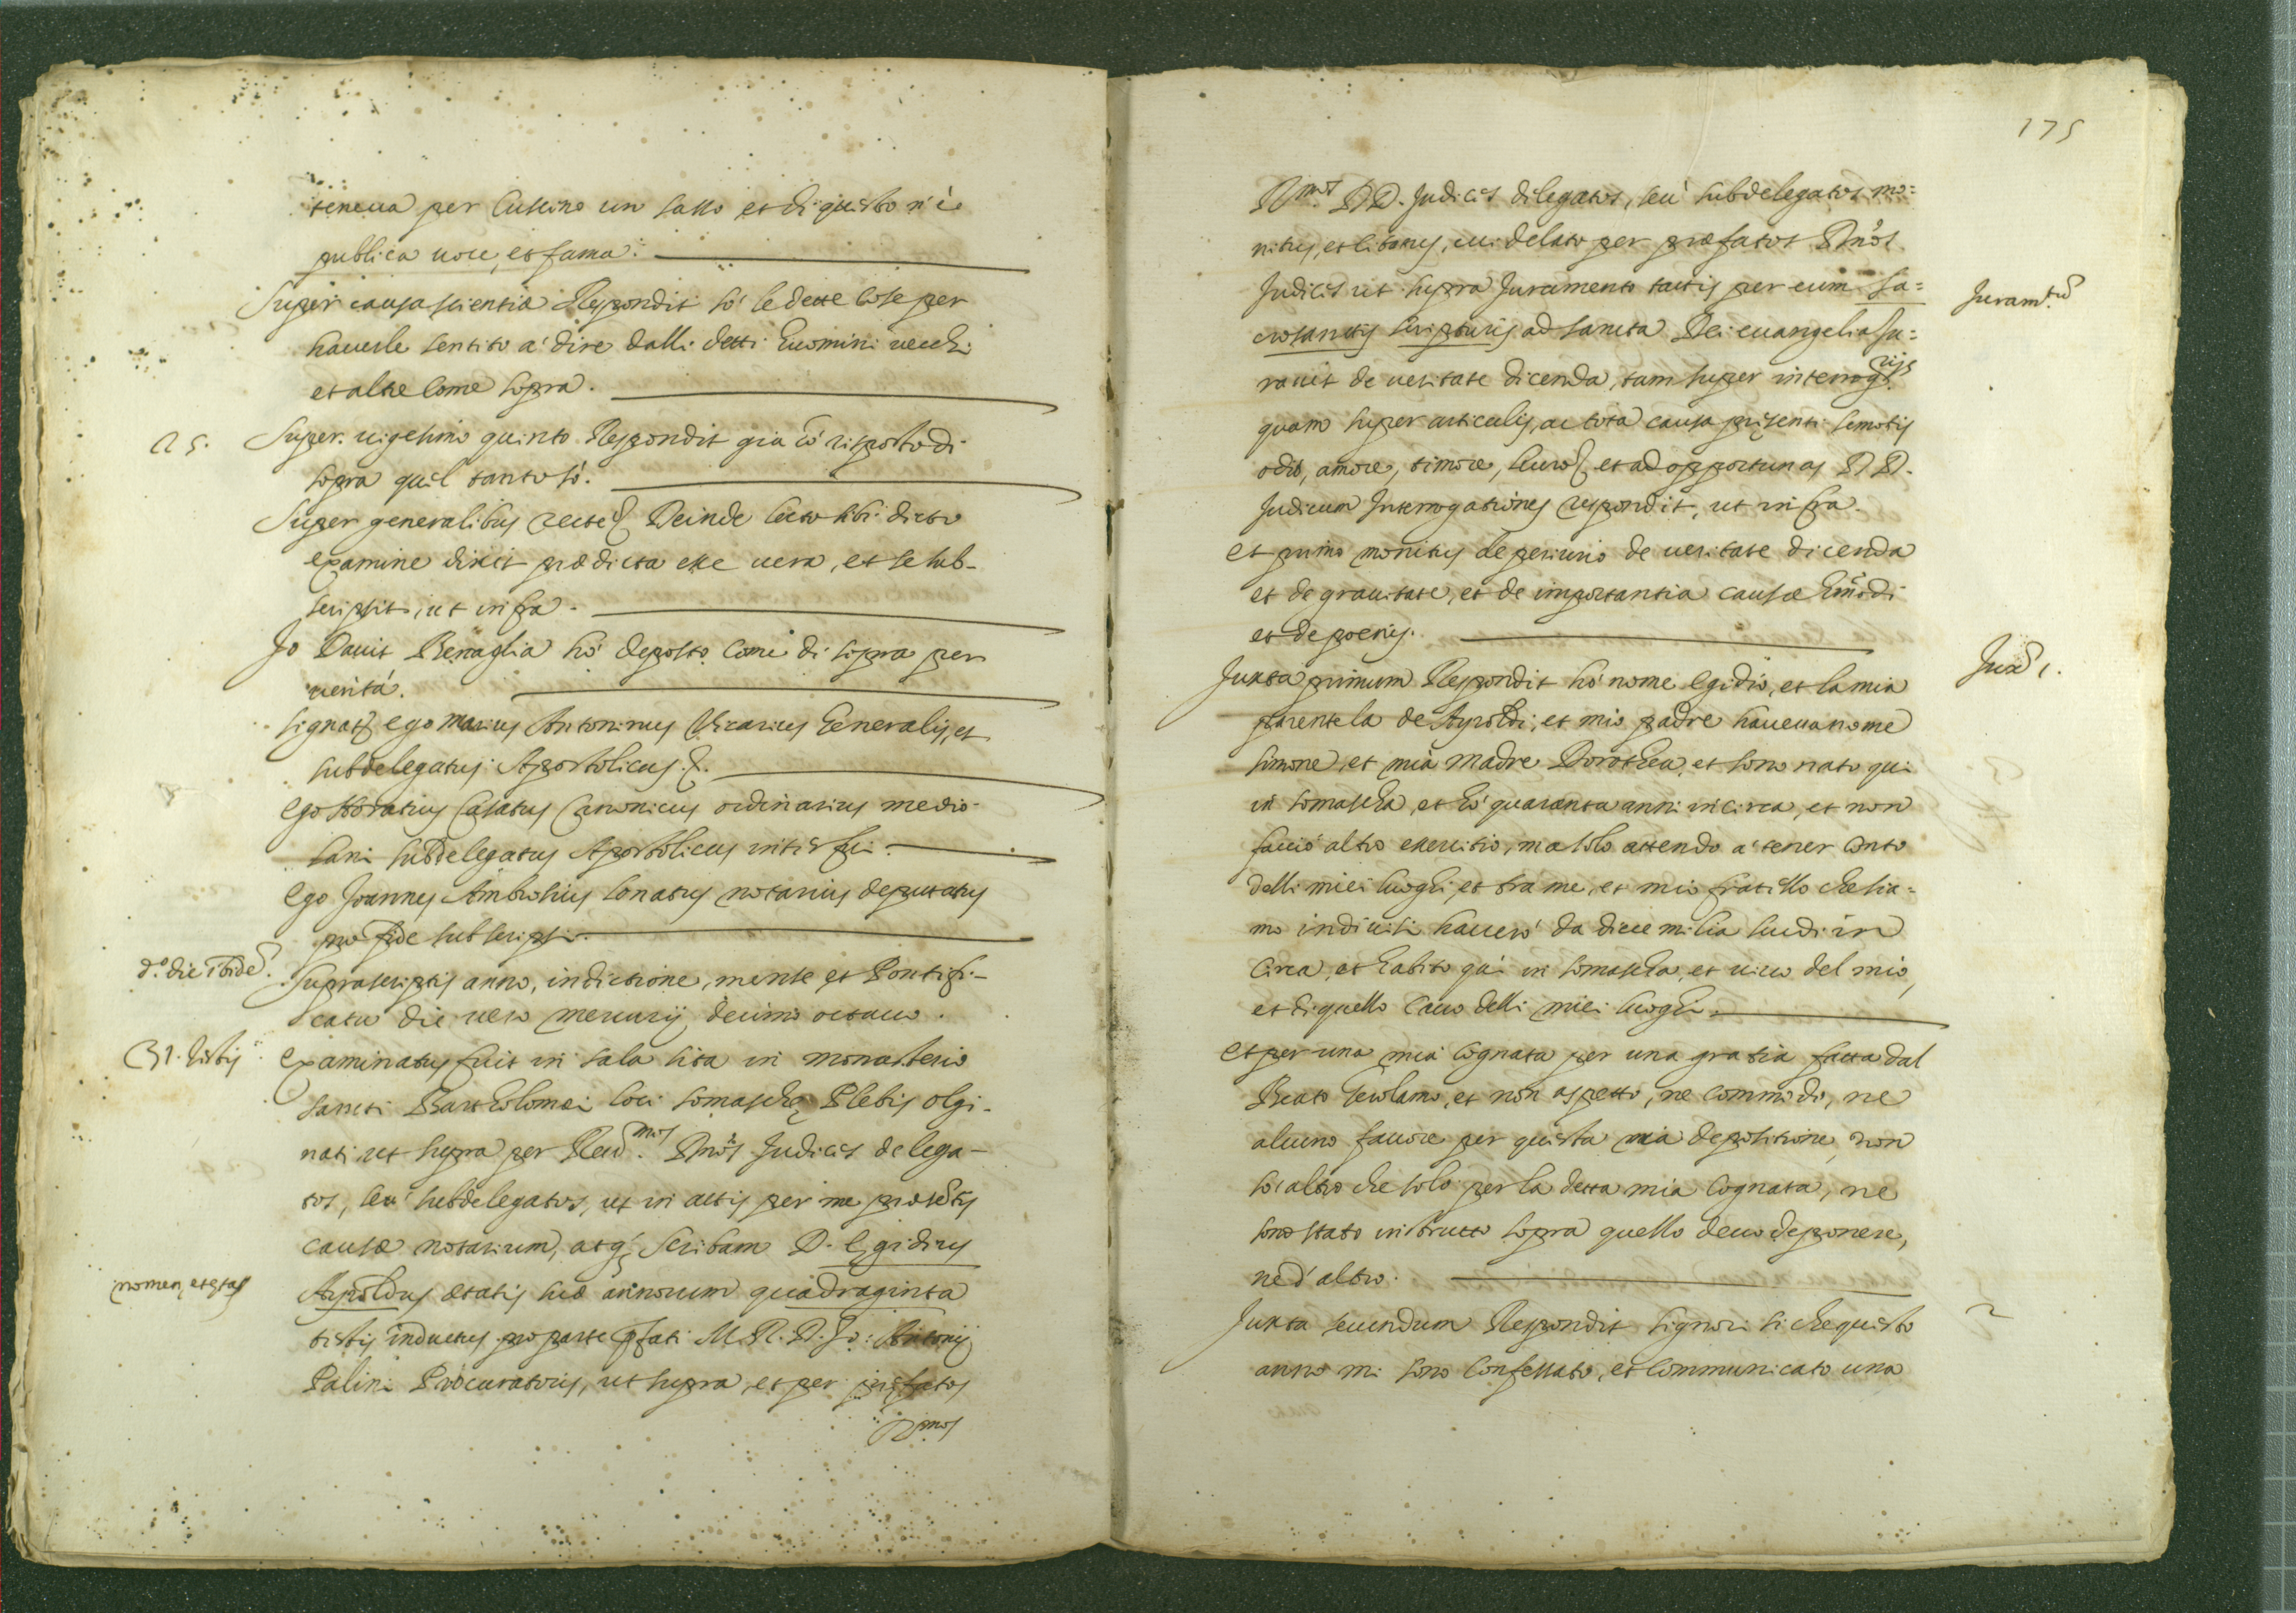 teneua per Cussino un sasso et di questo n'è
publica uoce, et fama.
Super causa scientiæ Respondit sò le dette cose per
hauerle sentito a' dire dalli detti huomini uecchi
et altre come sopra.
25. Super uigesimo quinto Respondit già hò risposto di
sopra quel tanto sò.
Super generalibus recte Deinde lecto sibi dicto
examine dixit prædicta esse uera, et se sub-
scripsit, ut infra.
Jo Dauit Benaglia hò deposto come di sopra per
uerità.
signat ego Marius Antoninus Vicarius Generalis, et
subdelegatus Apostolicus.
Ego Horatius Casatus Canonicus ordinarius medio-
lani subdelegatus Apostolicus interfui.
Ego Joannes Ambrosius Conatus notarius deputatus
pro fide subscripsi.
d.º die ibidē. Suprascriptis anno, indictione, mense et Pontifi-
catu die uero mercurij decimo octauo.
31. testis Examinatus fuit in sala sita in monasterio
sancti Bartholomei loci somaschę Plebis olgi-
nati ut supra per Reud.mos Dnõs Judices delega-
tos, seu' subdelegatos, ut in actis per me præsētis
causæ notarium, atq; scribam D. Egidius
nomen, et ętas Ayroldus ætatis suæ annorum quadraginta
testis inductus pro parte pfati M. R. D. Jo: Antonij
Palini Procuratoris, ut supra, et per pręfatos
Rmos
175
Rmos DD. Judices delegatos, seu' subdelegatos mo=
nitus, et citatus, cui delato per præfatos Dnõs
Judices ut supra Juramento tactis per eum sa= Juram.tū
crosanctis scripturis ad sancta Dei euangelia Ju=
rauit de ueritate dicenda, tam super interrog.rijs
quam super articulis, ac tota causa pręsenti semotis
odio, amore, timore, et ad opportunas DD.
Judicum Interrogationes respondit, ut infra.
Et primo monitus de periurio de ueritate dicenda
et de grauitate, et de importantia causæ hmõdi
et de poenis.
Juxta primum Respondit hò nome Egidio, et la mia Juxa 1.
parentela de Ayroldi, et mio padre haueua nome
simone, et mia madre Dorothea, et sono nato qui
in somascha, et hò quaranta anni incirca, et non
faccio altro exercitio, ma solo attendo a' tener conto
delli miei luoghi, et tra me, et mio fratello che sia=
mo indiuisi hauerò da diece milia scudi in
circa, et habito quì in somascha, et uiuo del mio,
et di quello cauo delli miei luoghi.
et per una mia cognata per una gratia fatta dal
Beato Gerolamo, et non aspetto, ne commodo, ne
alcuno fauore per questa mia depositione, non
sò altro che solo per la detta mia cognata, ne
sono stato instrutto sopra quello deuo deponere,
ne d'altro.
Juxta secundum Respondit signori si che questo 2
anno mi sono confessato, et communicato una